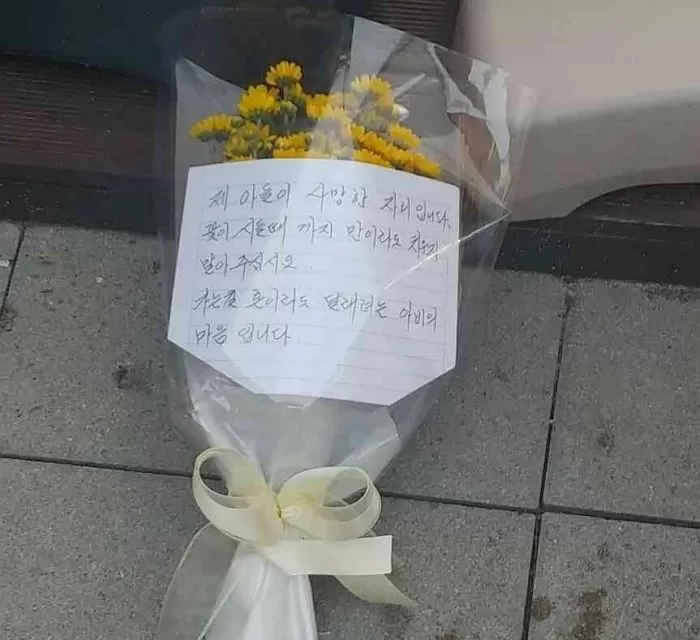 제 아들이 사망한 자리입니다.
꽃이 시들때 까지 만이라도 치우지
말아 주십시오.
넋이라도 달래려는 아비의
마음 입니다.